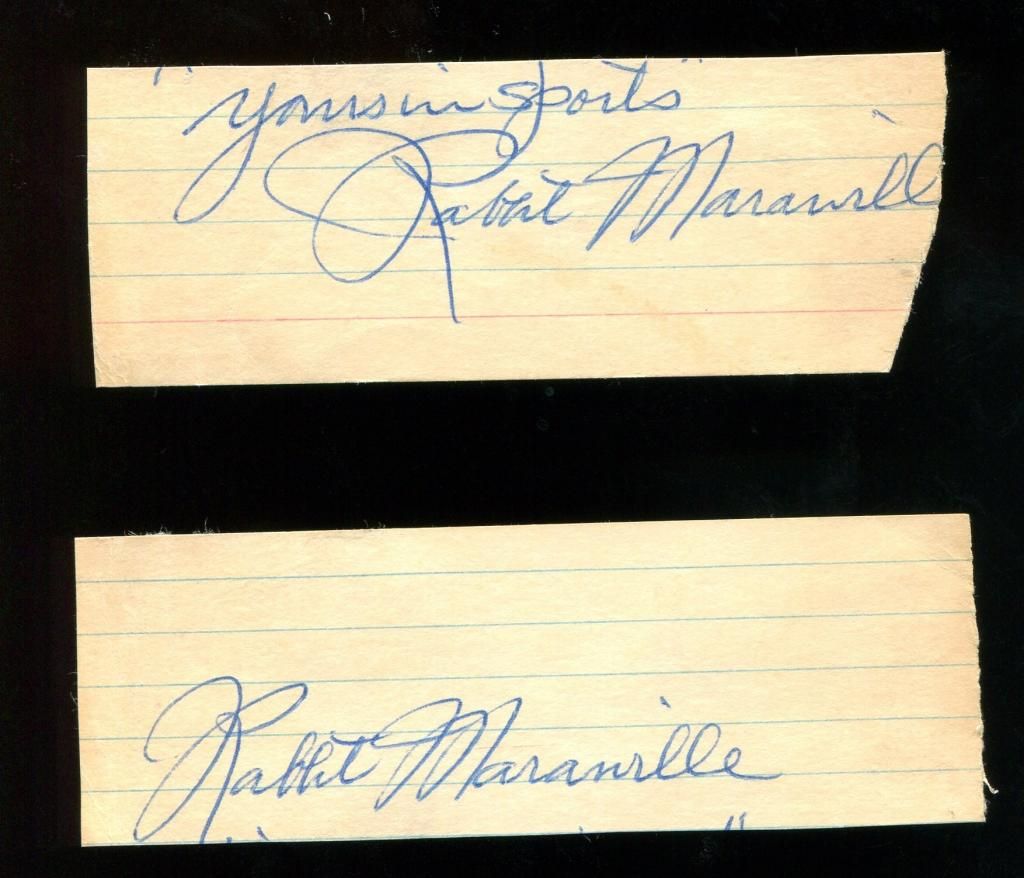 "Yours in sports"
Rabbit Maranvill
Rabbit Maranville